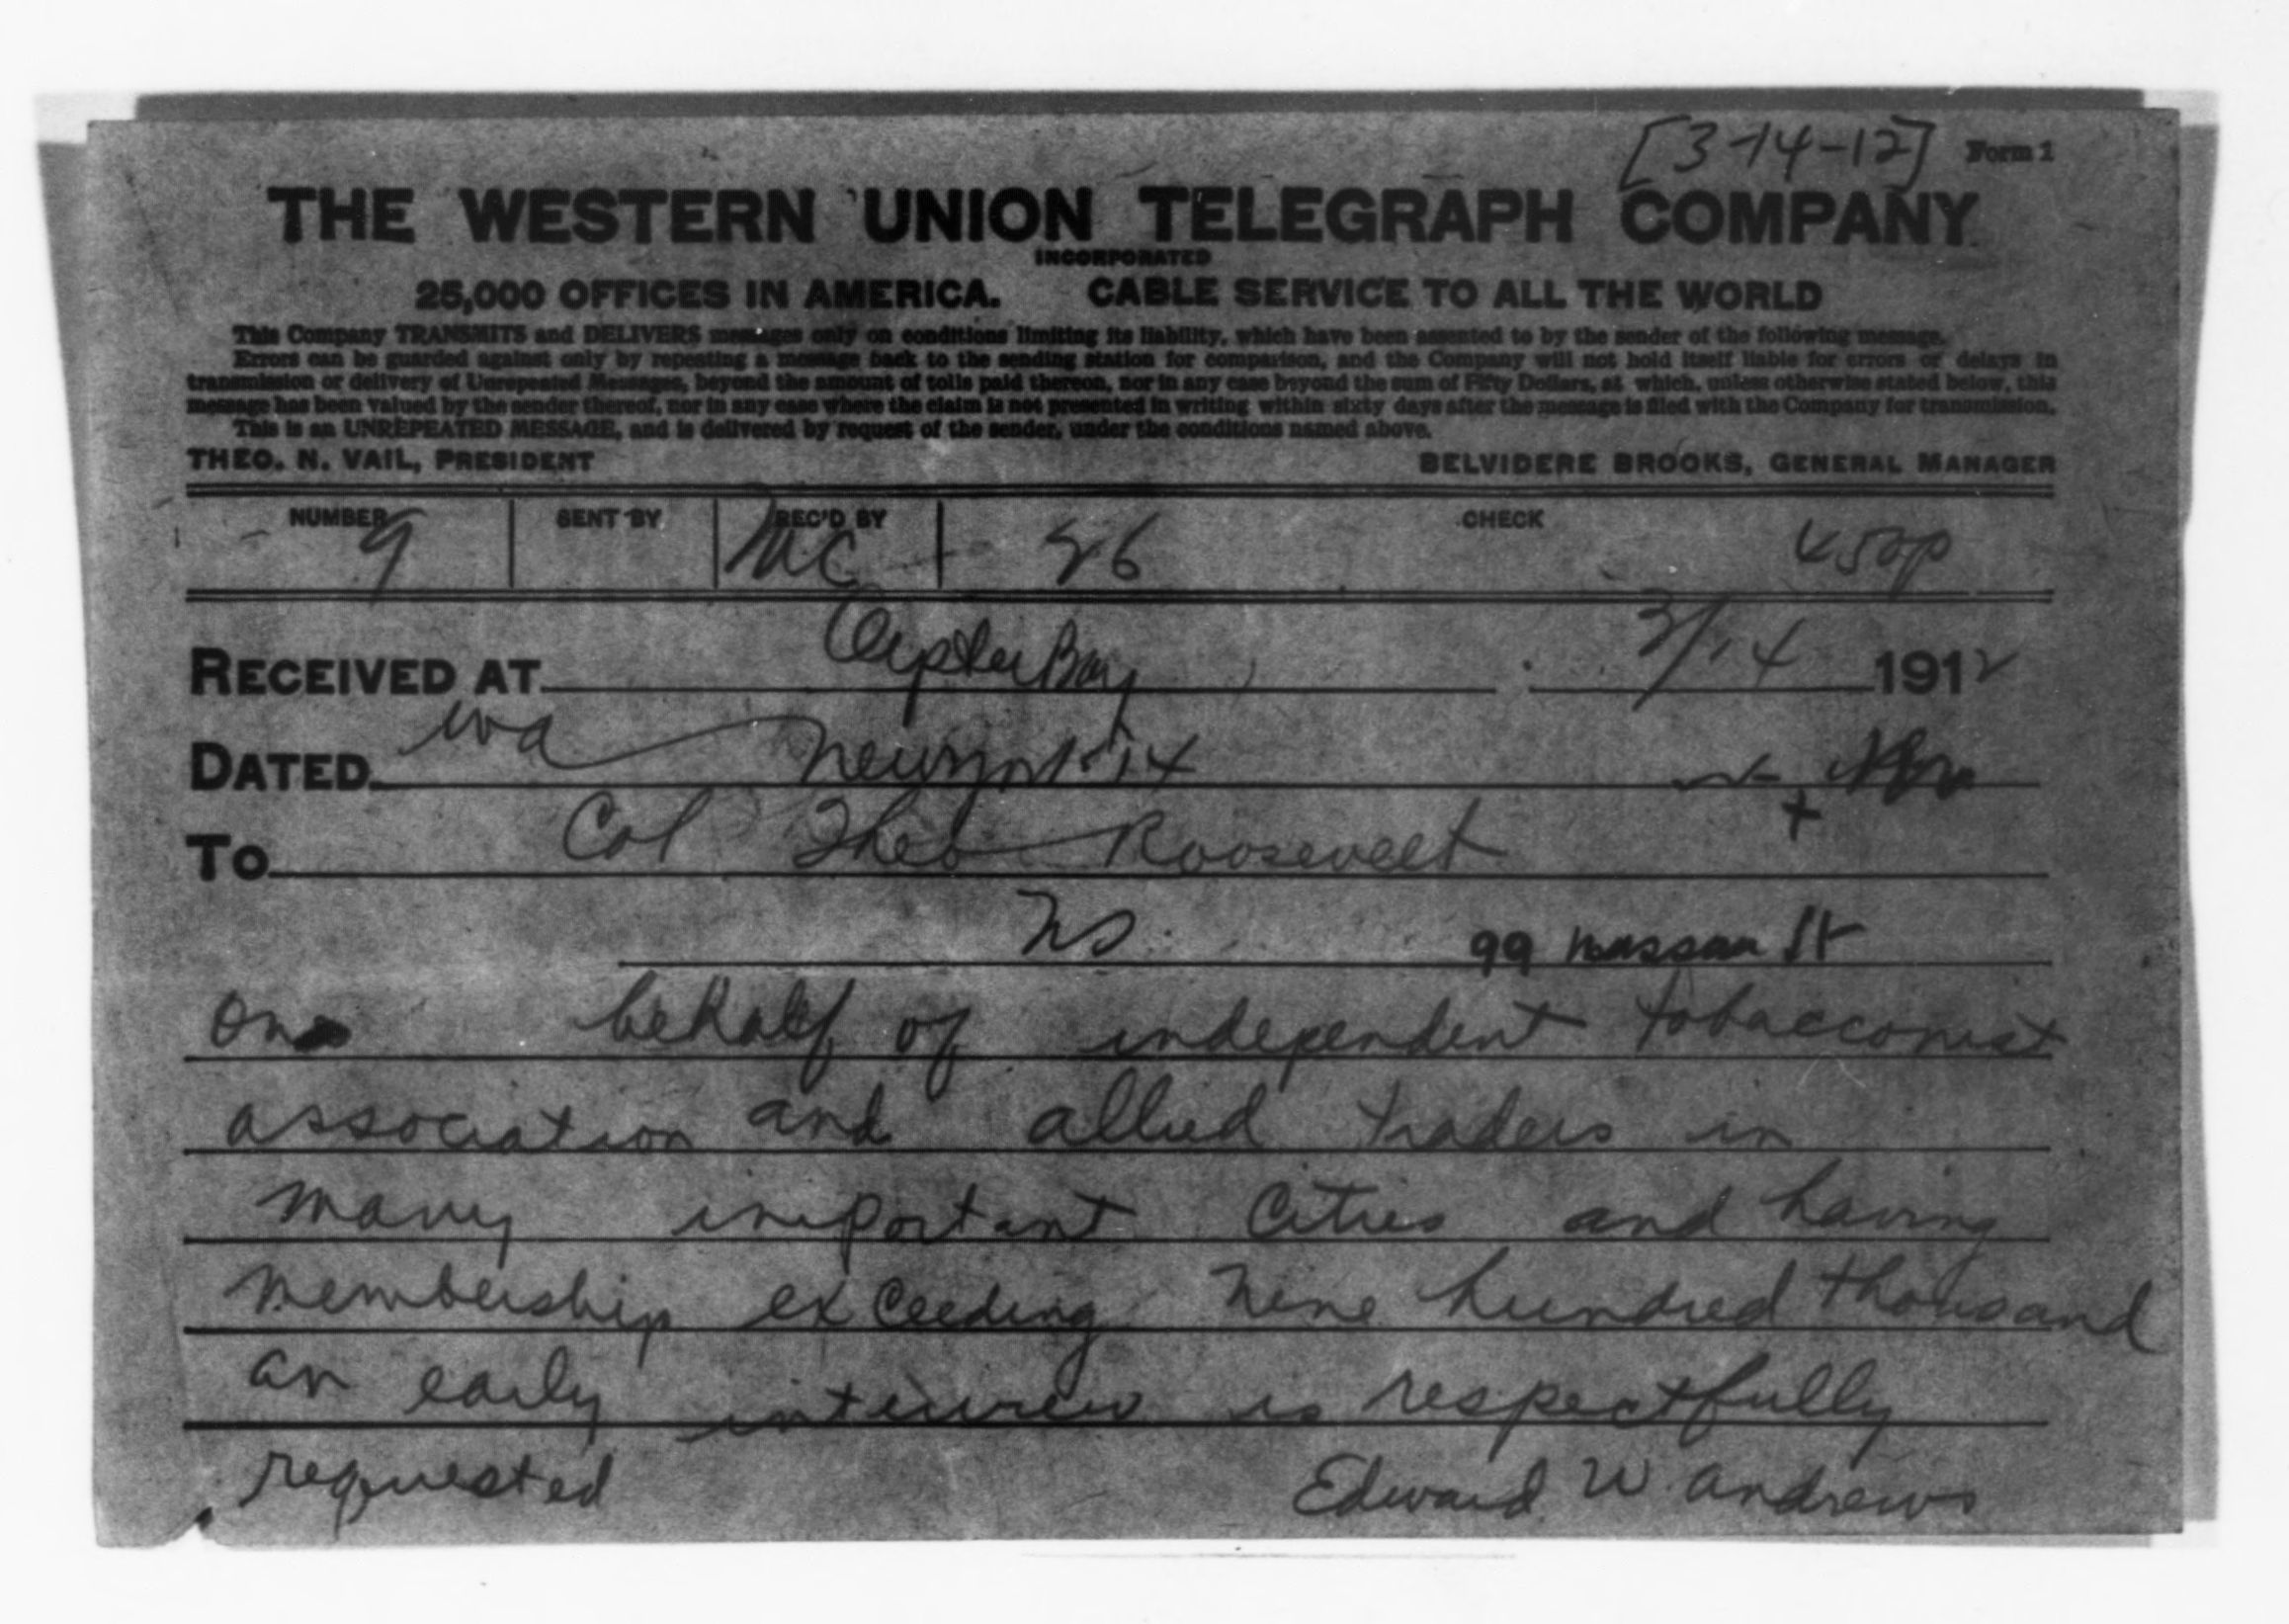 [3-14-12] Form 1
THE WESTERN UNION TELEGRAPH COMPANY
INCORPORATED
25,000 OFFICES IN AMERICA. CABLE SERVICE TO ALL THE WORLD
This Company TRANSMITS and DELIVERS messages only on conditions limiting its liability, which have been assented to by the sender of the following message.
Errors can be guarded against only by repeating a message back to the sending station for comparison, and the Company will not hold itself liable for errors or delays in
transmission or delivery of Unrepeated Messages, beyond the amount of tolls paid thereon, nor in any case beyond the sum of Fifty Dollars, at which, unless otherwise stated below, this
message has been valued by the sender thereof, nor in any case where the claim is not presented in writing within sixty days after the message is filed with the Company for transmission.
This is an UNREPEATED MESSAGE, and is delivered by request of the sender, under the conditions named above.
THEO. N. VAIL, PRESIDENT BELVIDERE BROOKS, GENERAL MANAGER
NUMBER SENT BY REC'D BY CHECK
9 MC 450p
RECEIVED AT Oyster Bay 3/14 1912
DATED Newyork 14
To Col Theo Roosevelt
99 Nassau St
On behalf of independent tobacconist
association and allied traders in
many important Cities and having
membership exceeding nine hundred thousand
an early interview is respectfully
requested Edward W Andrews